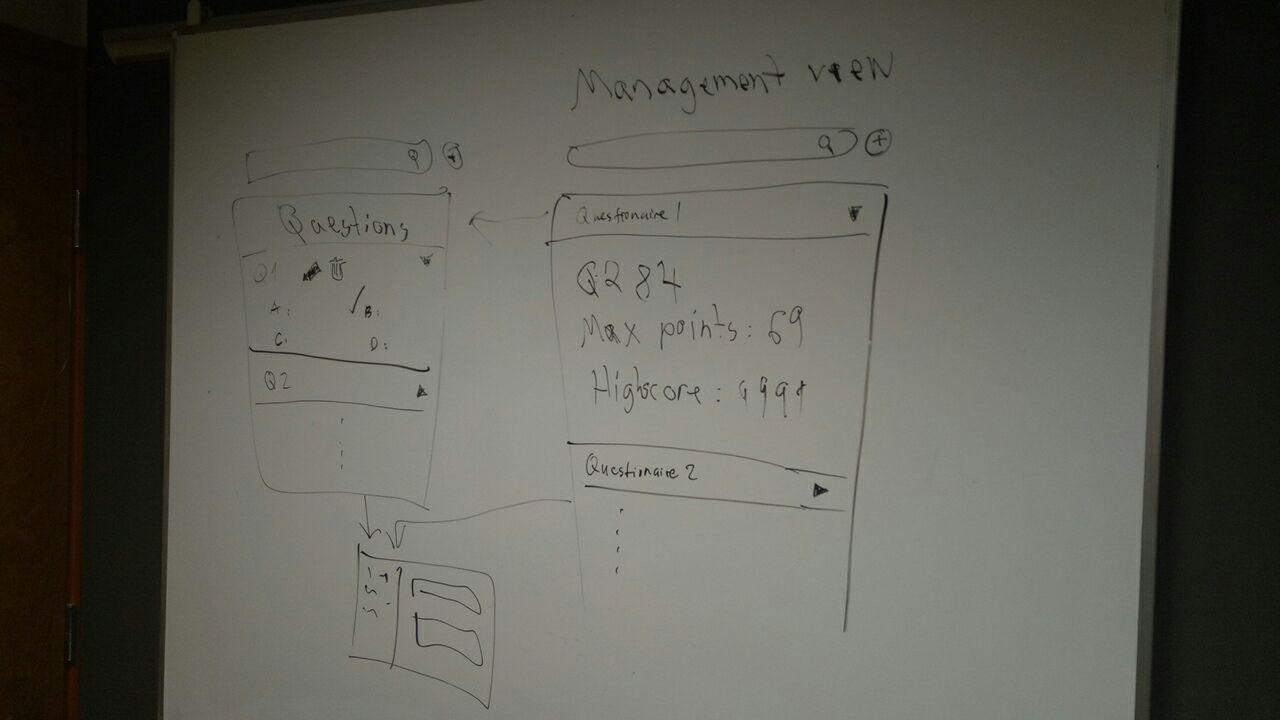 Management view
Questions
Q1
A:
B:
C:
D:
Q2
Questionaire 1
Q284
Max points: 69
Highscore: 9999
Questionaire 2